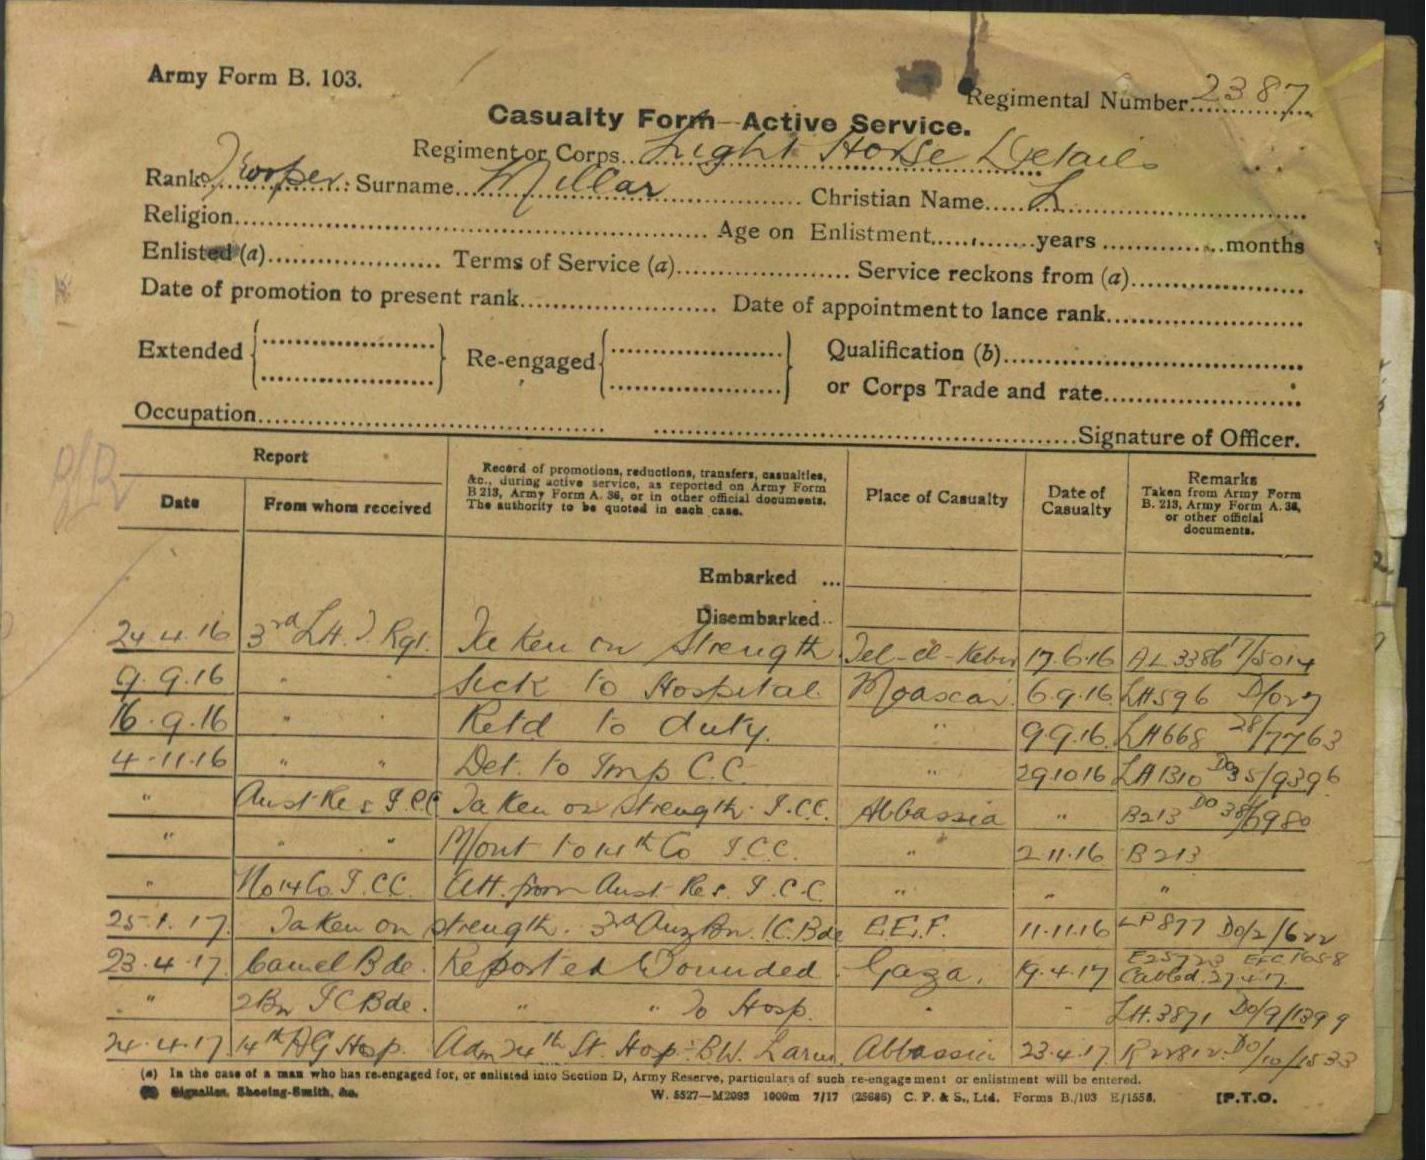 Army Form B. 103.
Regimental Number 2387
Casualty Form—Active Service.
Regiment or Corps Light Horse Details
Rank Trooper Surname Millar Christian Name L
Religion Age on Enlistment years months
Enlisted (a) Terms of Service (a) Service reckons from (a)
Date of promotion to present rank Date of appointment to lance rank
Extended Re-engaged Qualification (b)
or Corps Trade and rate
Occupation Signature of Officer.
Report
Date From whom received
Record of promotions, reductions, transfers, casualties,
&c., during active service, as reported on Army Form
B 213, Army Form A. 36, or in other official documents.
The authority to be quoted in each case.
Place of Casualty
Date of
Casualty
Remarks
Taken from Army Form
B. 213, Army Form A. 36,
or other official
documents.
Embarked ...
Disembarked..
24.4.16 3rd L.H. T. Rgt. Taken on Strength Tel-el-Kebir 17.6.16 AL 3386 17/5014
9.9.16 " " Sick to Hospital Moascar 6.9.16 LH596
16.9.16 " " Retd to duty. " 9.9.16 LH668 28/7763
4.11.16 " " Det. to Imp C.C. " 29.10.16 LH1310 DO35/9396
" Aust Res I.CC Taken on Strength I.C.C. Abbassia " B213 DO 38/
" " " M/out to 14th Co I.C.C. " 2.11.16 B213
" No 14 Co. I.CC. Att. from Aust Res. I.C.C " " "
25.1.17 Taken on strength. 3rd Anz Bn. I.C. Bde E.E.F. 11.11.16 LP877 DO/2/622
23.4.17 Camel Bde. Reported Wounded Gaza. 19.4.17 Cabled 27.4.17
" 2Bn I C Bde. " " To Hosp. " " LH.3871 DO/9/1399
24.4.17 14th AG Hosp. Adm 24th St. Hosp. BW. Abbassia 23.4.17 R22812 DO/10/1533
(a) In the case of a man who has re-engaged for, or enlisted into Section D, Army Reserve, particulars of such re-engagement or enlistment will be entered.
(b) Signaller, Shoeing-Smith, &c.
W. 5527—M2093 1000m 7/17 (25686) C. P. & S., Ltd. Forms B./103 E/1558.
[P.T.O.